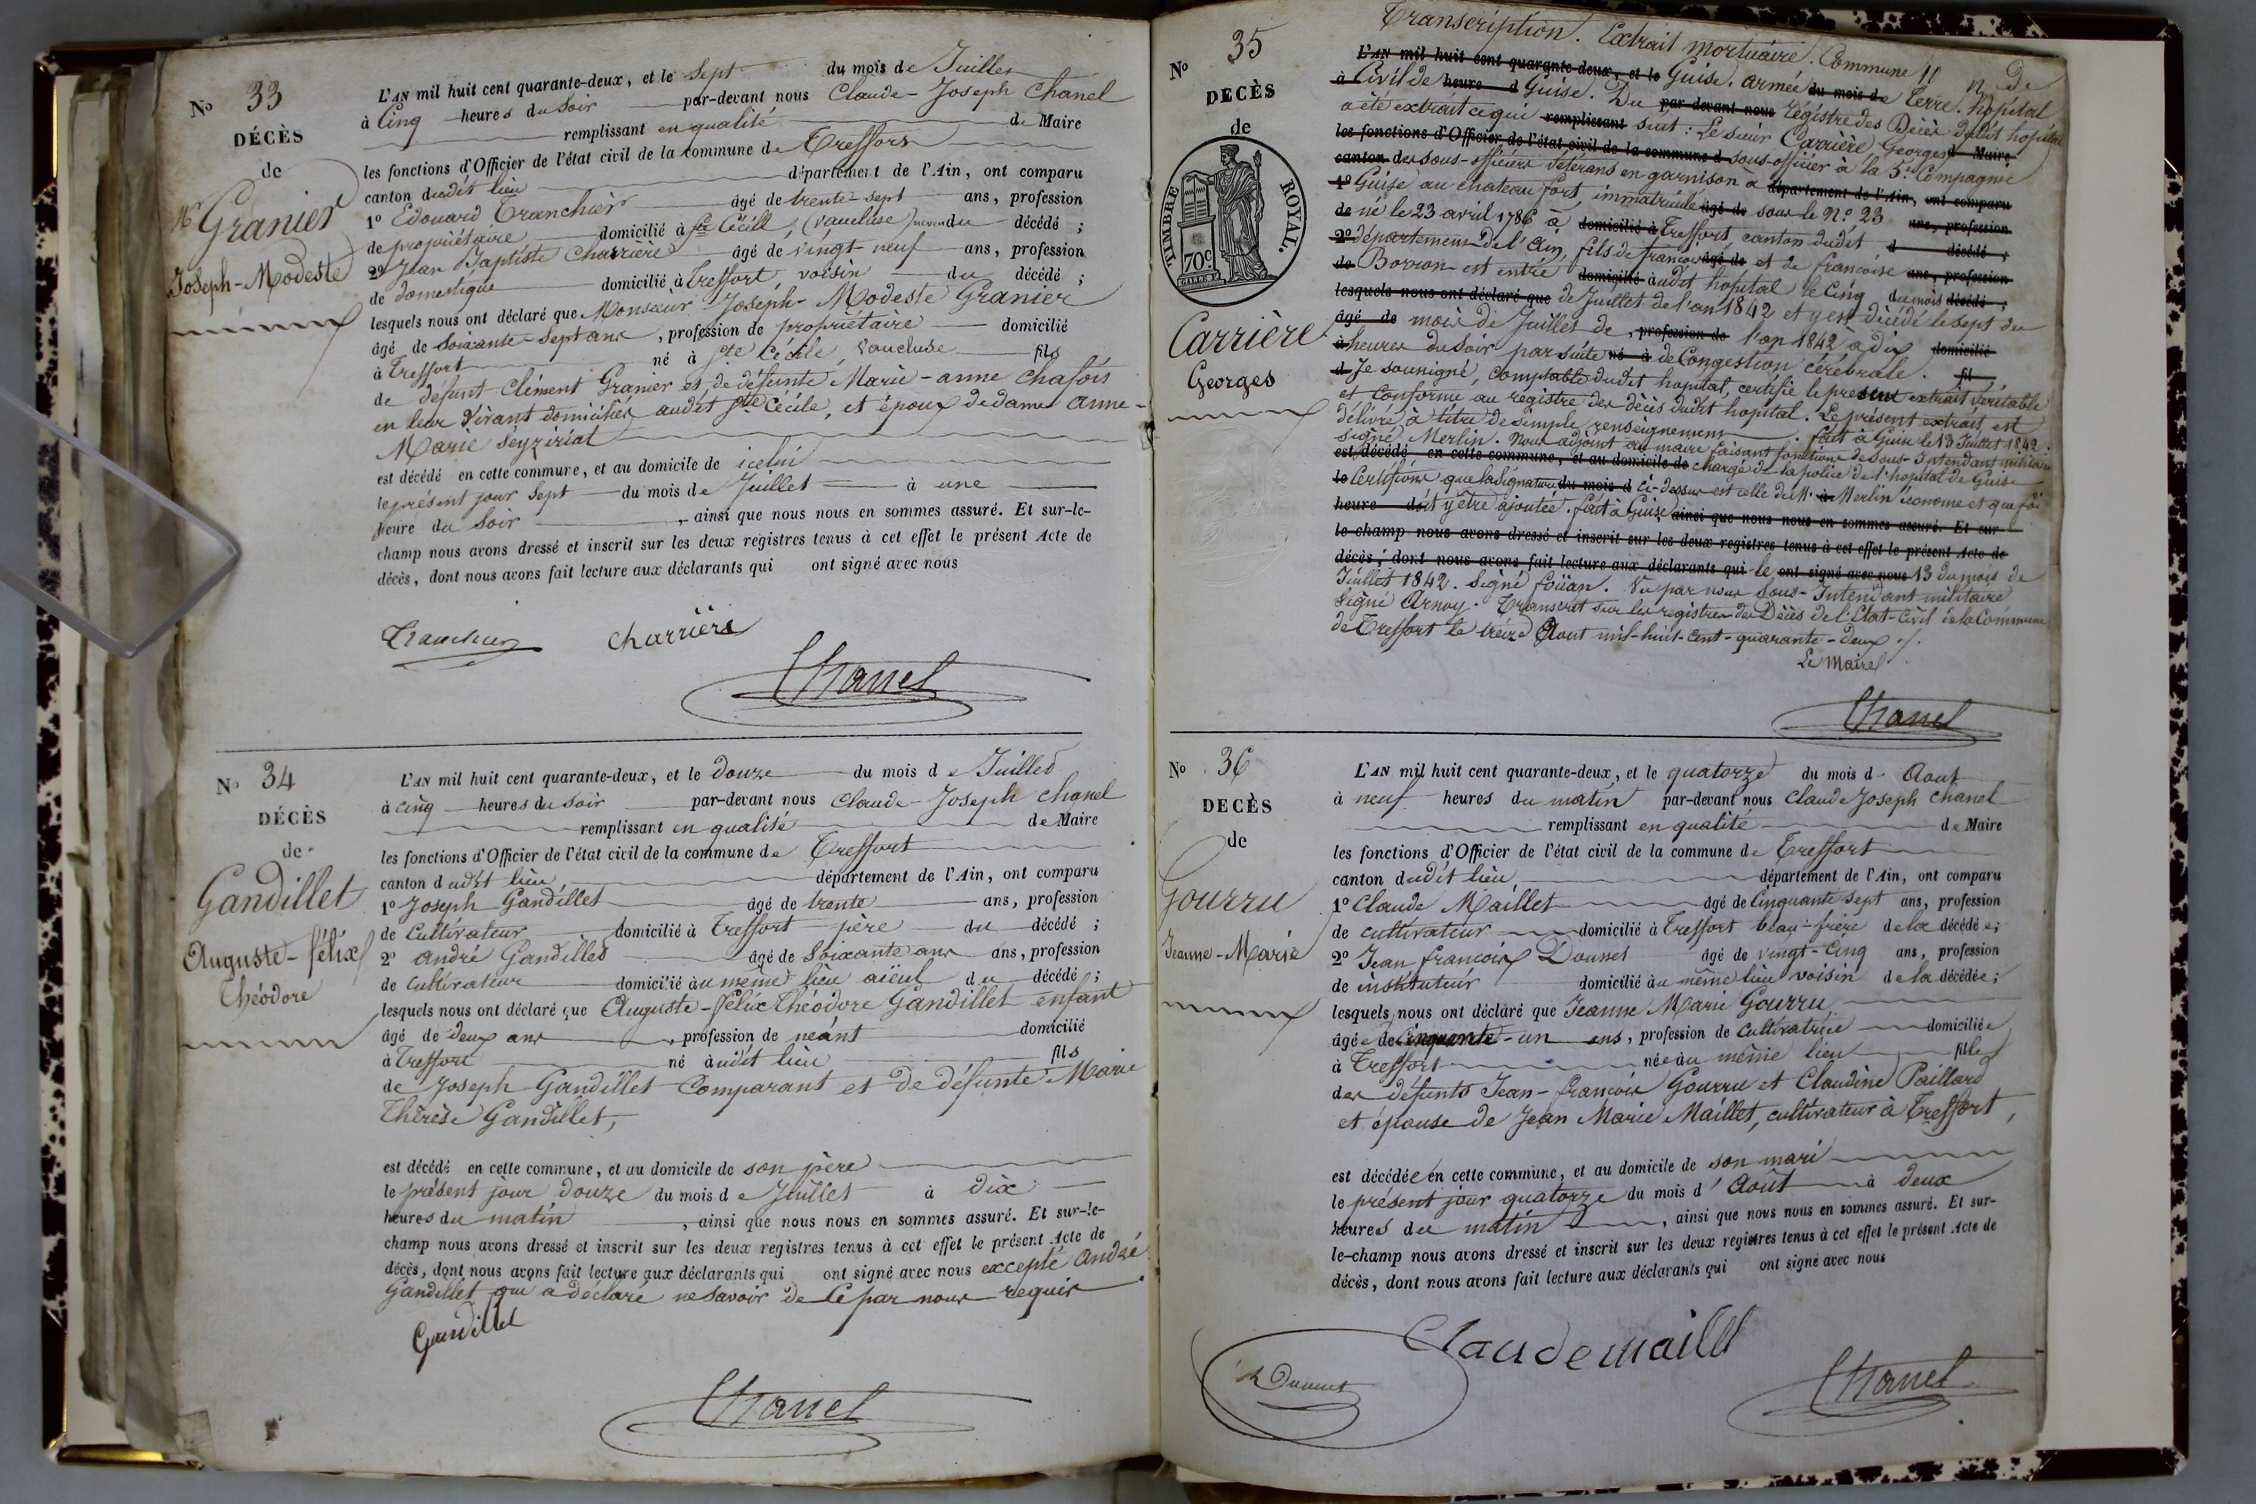 No 33
DÉCÈS
de
Mr Granier
Joseph-Modeste
L'AN mil huit cent quarante-deux, et le Sept du mois de Juillet
à Cinq heures du Soir par-devant nous Claude-Joseph Chanel
remplissant en qualité de Maire
les fonctions d'Officier de l'état civil de la commune de Treffort
canton dudit lieu département de l'Ain, ont comparu
1o Edouard Tranchier âgé de trente-sept ans, profession
de propriétaire domicilié à Ste Cécile, (Vaucluse) neveu du décédé ;
2o Jean Baptiste Charrière âgé de vingt-neuf ans, profession
de domestique domicilié à Treffort, voisin du décédé ;
lesquels nous ont déclaré que Monsieur Joseph-Modeste Granier
âgé de soixante-sept ans, profession de propriétaire domicilié
à Treffort né à Ste Cécile, Vaucluse fils
de défunt Clément Granier et de défunte Marie-anne Chafois
en leur vivant domiciliés audit Ste Cécile, et époux de dame Anne-
Marie Seyzériat
est décédé en cette commune, et au domicile de icelui
le présent jour Sept du mois de Juillet à une
heure du Soir, ainsi que nous nous en sommes assuré. Et sur-le-
champ nous avons dressé et inscrit sur les deux registres tenus à cet effet le présent Acte de
décès, dont nous avons fait lecture aux déclarants qui ont signé avec nous
Tranchier Charrière
Chanel
No 34
DÉCÈS
de
Gandillet
Auguste-félix
Théodore
L'AN mil huit cent quarante-deux, et le douze du mois de Juillet
à cinq heures du Soir par-devant nous Claude-Joseph Chanel
remplissant en qualité de Maire
les fonctions d'Officier de l'état civil de la commune de Treffort
canton dudit lieu département de l'Ain, ont comparu
1o Joseph Gandillet âgé de trente ans, profession
de Cultivateur domicilié à Treffort père du décédé ;
2o André Gandillet âgé de Soixante ans ans, profession
de Cultivateur domicilié au même lieu aïeul du décédé ;
lesquels nous ont déclaré que Auguste-félix Théodore Gandillet enfant
âgé de deux ans, profession de néant domicilié
à Treffort né audit lieu fils
de Joseph Gandillet Comparant et de défunte Marie
Thérèse Gandillet,
est décédé en cette commune, et au domicile de son père
le présent jour douze du mois de Juillet à dix
heures du matin, ainsi que nous nous en sommes assuré. Et sur-le-
champ nous avons dressé et inscrit sur les deux registres tenus à cet effet le présent Acte de
décès, dont nous avons fait lecture aux déclarants qui ont signé avec nous excepté André
Gandillet qui a déclaré ne savoir de ce par nous requis
Gandillet
Chanel
No 35
DECÈS
de
TIMBRE ROYAL.
70c
Carrière
Georges
Transcription. Extrait mortuaire. Commune de
L'AN mil huit cent quarante-deux, et le Guise. armée du mois de terre. hôpital
à Civil de heure d Guise. Du par-devant nous régistre des Décès dudit hopital
a été extrait ce qui remplissant suit : Le sieur Carrière Georges d Maire
les fonctions d'Officier de l'état civil de la commune d sous-officier à la 5e Compagnie
canton des sous-officiers vétérans en garnison à département de l'Ain, ont comparu
1o Guise au chateau fort, immatriculé âgé de sous le No. 23 ans, profession
de né le 23 avril 1786 à domicilié à Treffort canton dudit d décédé ;
2o département de l'Ain, fils de françois âgé de et de francoise ans, profession
de Borron est entré domicilié audit hopital le cinq du mois décédé ;
lesquels nous ont déclaré que de Juillet de l'an 1842 et y est décédé le sept du
âgé de mois de Juillet de, profession de l'an 1842 à dix domicilié
à heures du soir par suite né à de Congestion cérébrale. fil
d Je soussigné, comptable dudit hopital, certifie le présent extrait véritable
et conforme au registre des décès dudit hopital. Le présent extrait est
délivré à titre de simple renseignement. fait à Guise le 13 Juillet 1842.
signé Merlin. Nous adjoint au maire faisant fonctions de Sous-Intendant militaire
est décédé en cette commune, et au domicile de chargé de la police de l'hopital de Guise
le Certifions que la signature du mois d ci-dessus est celle de Mr à Merlin économe et que foi
heure doit y être ajoutée. fait à Guise ainsi que nous nous en sommes assuré. Et sur
le-champ nous avons dressé et inscrit sur les deux registres tenus à cet effet le présent Acte de
décès ; dont nous avons fait lecture aux déclarants qui le ont signé avec nous 13 du mois de
Juillet 1842. Signé foüan. Vu par nous Sous-Intendant militaire
Signé Arnoy. Transcrit sur les registres des Décès de l'Etat-Civil de la Commune
de Treffort le treize Aout mil-huit-cent-quarante-deux ./.
Le Maire
Chanel
No 36
DECÈS
de
Gourru
Jeanne-Marie
L'AN mil huit cent quarante-deux, et le quatorze du mois d Aout
à neuf heures du matin par-devant nous Claude Joseph Chanel
remplissant en qualité de Maire
les fonctions d'Officier de l'état civil de la commune de Treffort
canton dudit lieu, département de l'Ain, ont comparu
1o Claude Maillet âgé de Cinquante sept ans, profession
de cultivateur domicilié à Treffort beau-frère de la décédée;
2o Jean francois Doussel âgé de vingt-cinq ans, profession
de instituteur domicilié au même lieu voisin de la décédée;
lesquels nous ont déclaré que Jeanne Marie Gourru
âgée de Cinquante-un ans, profession de Cultivatrice domiciliée
à Treffort née au même lieu fille
des défunts Jean-francois Gourru et Claudine Paillard
et épouse de Jean Marie Maillet, cultivateur à Treffort,
est décédée en cette commune, et au domicile de son mari
le présent jour quatorze du mois d'Août à deux
heures du matin, ainsi que nous nous en sommes assuré. Et sur-
le-champ nous avons dressé et inscrit sur les deux registres tenus à cet effet le présent Acte de
décès, dont nous avons fait lecture aux déclarants qui ont signé avec nous
Claude maillet
Chanel